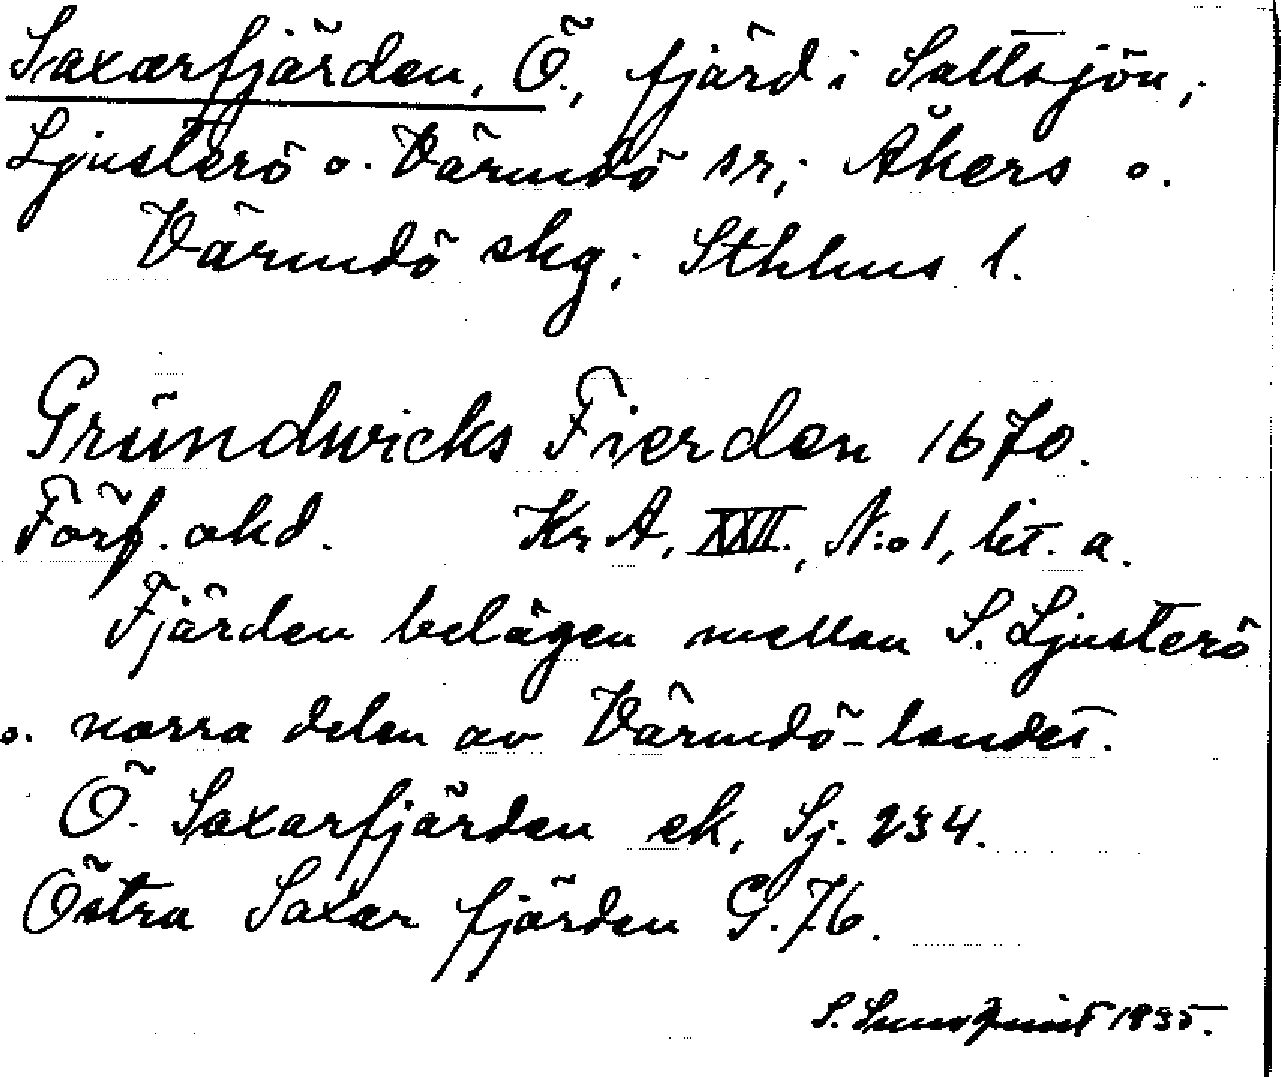 Saxarfjärden, Ö., fjärd i Saltsjön,
Ljusterö o. Värmdö sr; Åkers o.
Värmdö skg; Sthlms l.
Gründwicks Fierden 1670.
Förf. okd. Kr A, XXII., N:o 1, lit. a.
Fjärden belägen mellan S. Ljusterö
o. norra delen av Värmdö-landet.
Ö. Saxarfjärden ek, Sj. 234.
Östra Saxar fjärden G. 76.
S. Sundquist 1935.